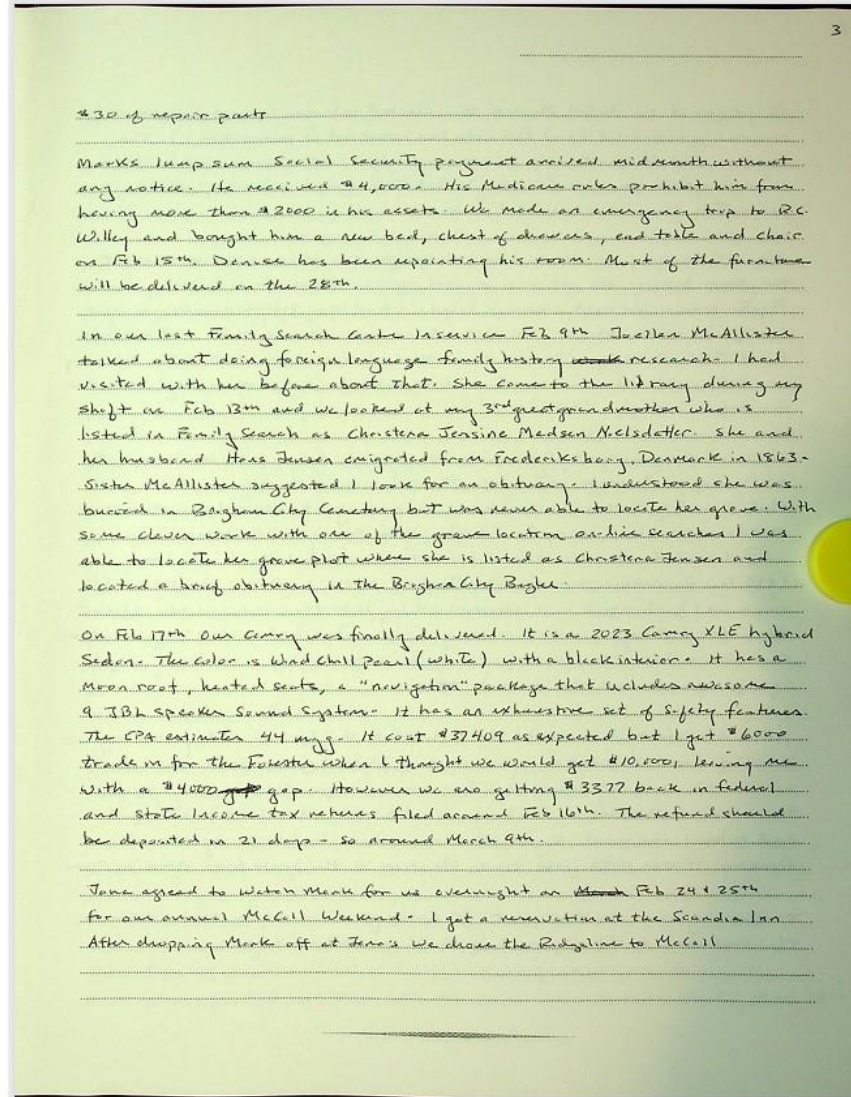 3
$30 of repair parts
Marks lump sum Social Security payment arrived mid month without
any notice. He received $4,000. His Medicare rules prohibit him from
having more than $2000 in his assets. We made an emergency trip to R.C.
Willey and bought him a new bed, chest of drawers, end table and chair
on Feb 15th. Denise has been repainting his room. Most of the furniture
will be delivered on the 28th.
In our last Family Search Center Inservice Feb 9th Joellen McAllister
talked about doing foreign language family history research. I had
visited with her before about that. She came to the library during my
shift on Feb 13th and we looked at my 3rd great grandmother who is
listed in Family Search as Christena Jensine Madsen Nielsdatter. She and
her husband Hans Jensen emigrated from Frederiksborg, Denmark in 1863.
Sister McAllister suggested I look for an obituary. I understood she was
buried in Brigham City Cemetery but was never able to locate her grave. With
some clever work with one of the grave location on-line searches I was
able to locate her grave plot where she is listed as Christena Jensen and
located a brief obituary in The Brigham City Bugler.
On Feb 17th Our Camry was finally delivered. It is a 2023 Camry XLE hybrid
Sedan. The color is Wind Chill pearl (white) with a black interior. It has a
Moon roof, heated seats, a "navigation" package that includes awesome
9 JBL speaker Sound System. It has an exhaustive set of safety features.
The EPA estimates 44 mpg. It cost $37409 as expected but I got $6000
trade in for the Forester when I thought we would get $10,000, leaving me
with a $4000 gap. However we are getting $3377 back in federal
and State Income tax returns filed around Feb 16th. The refund should
be deposited in 21 days - so around March 9th.
Jana agreed to Watch Mark for us overnight on Feb 24 & 25th
for our annual McCall Weekend. I got a reservation at the Scandia Inn
After dropping Mark off at Jana's we drove the Ridgeline to McCall